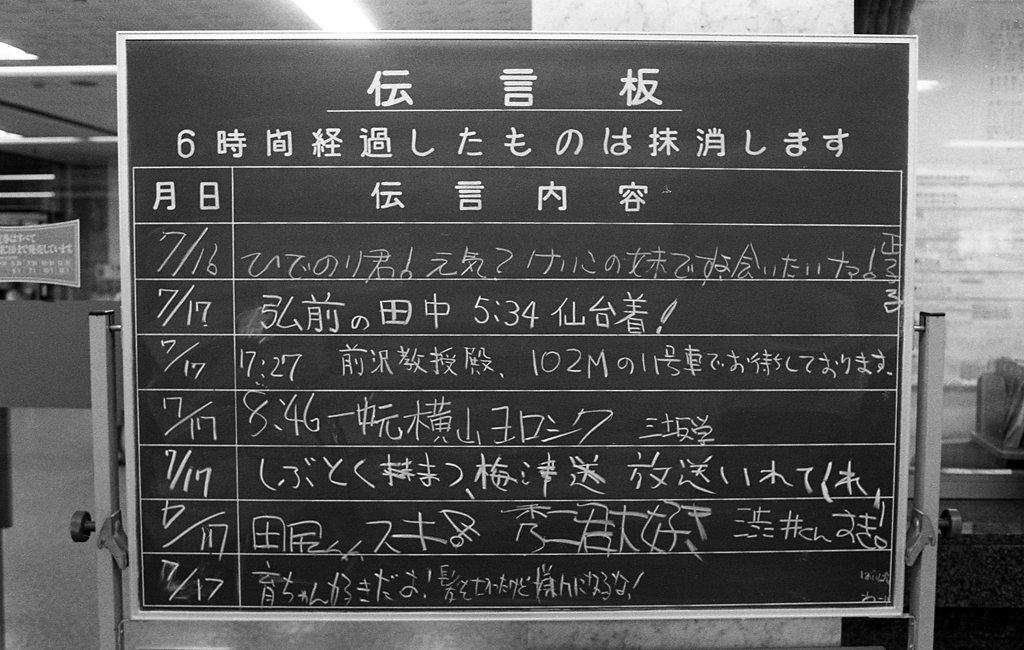 伝言板
6時間経過したものは抹消します
月日 伝言内容
7/16 ひでのり君！元気？けいこの妹ですよ会いたいナョ！
7/17 弘前の田中 5:34 仙台着！
7/17 17:27 前沢教授殿、102Mの11号車でお待ちしております。
7/17 8:46 横山ヨロシク
7/17 しぶとくまつ、梅津送 放送いれてくれ
/17 スキ 秀二君大好き 渋井くんすき！
7/17 育ちゃん好きだよ！